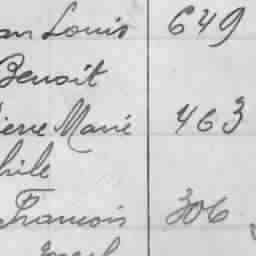 Louis 649
Benoit
Pierre Marie 463
François 306